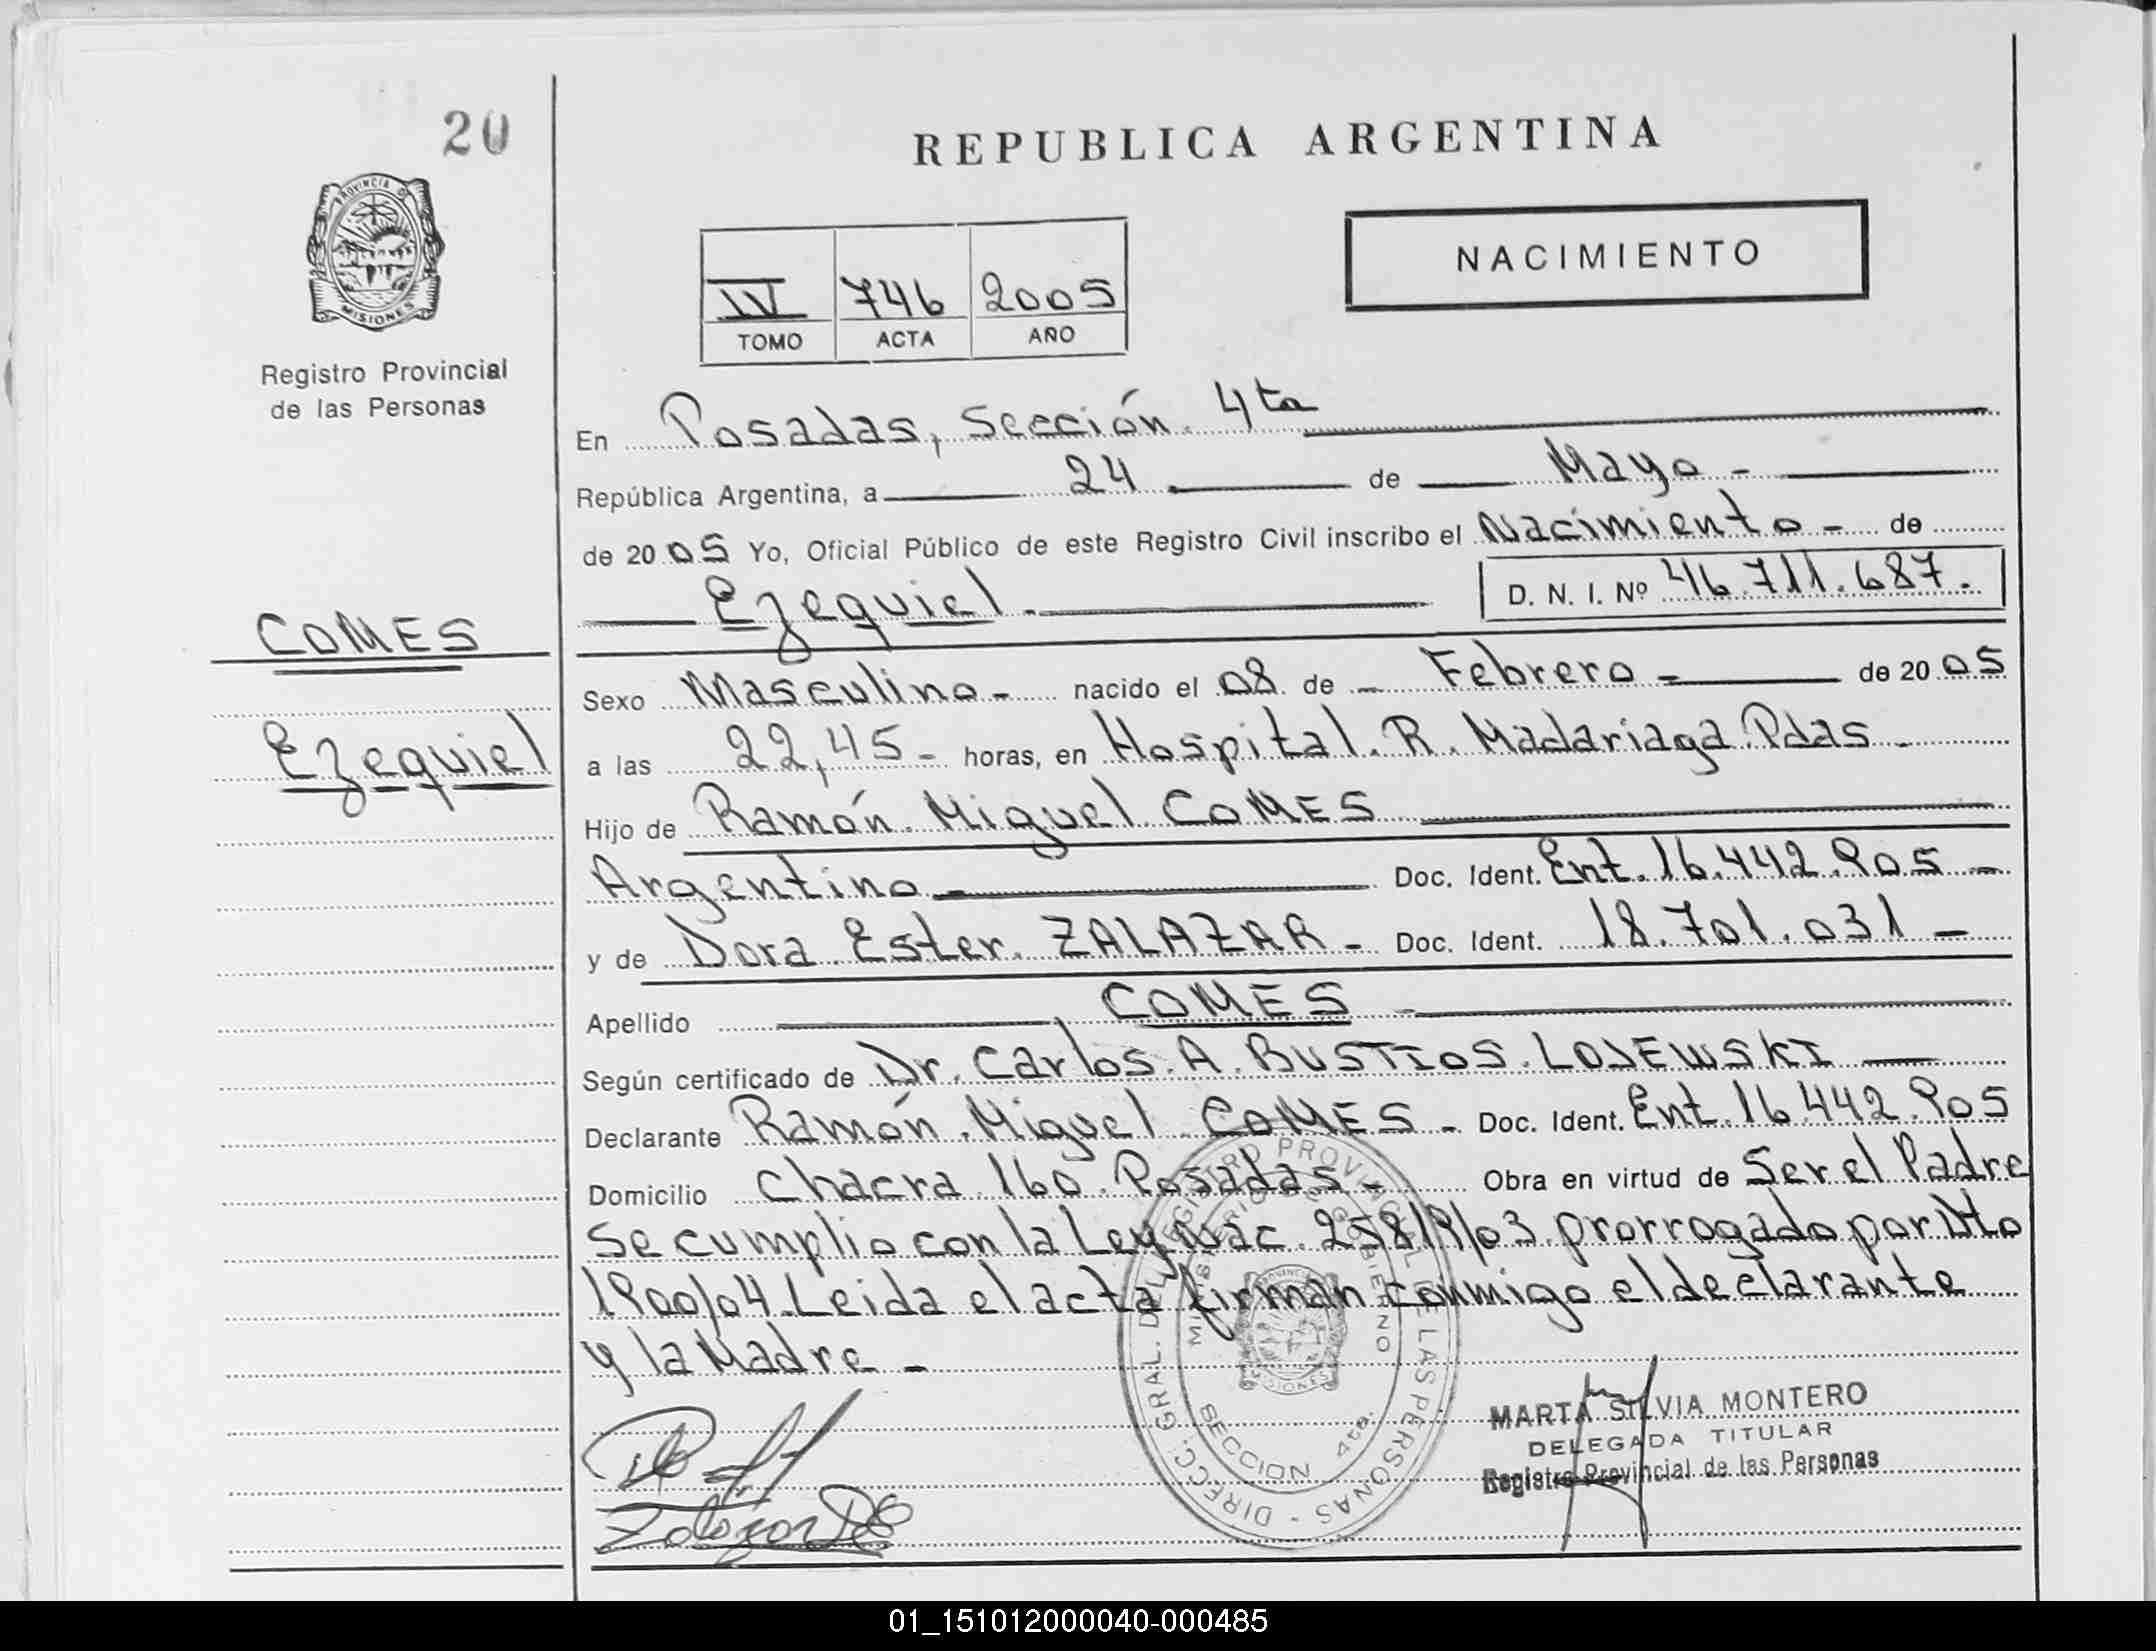 20
REPUBLICA ARGENTINA
PROVINCIA DE
MISIONES
Registro Provincial
de las Personas
IV 746 2005
TOMO ACTA AÑO
NACIMIENTO
En Posadas, Sección 4ta
República Argentina, a 24 de Mayo -
de 20 05 Yo, Oficial Público de este Registro Civil inscribo el Nacimiento - de
Ezequiel - D. N. I. Nº 46.711.687.
COMES
Ezequiel
Sexo Masculino - nacido el 08 de - Febrero - de 20 05
a las 22,45 - horas, en Hospital R. Madariaga Pdas -
Hijo de Ramón Miguel COMES
Argentino - Doc. Ident. Ent. 16.442.905 -
y de Dora Ester ZALAZAR - Doc. Ident. 18.701.031 -
Apellido COMES -
Según certificado de Dr. Carlos A. BUSTIOS LOSEWSKI
Declarante Ramón Miguel COMES - Doc. Ident. Ent. 16.442.905
Domicilio Chacra 160 Posadas - Obra en virtud de Ser el Padre
Se cumplio con la Ley Nac. 25819/03 prorrogado por Dto
1900/04. Leida el acta firman conmigo el declarante
y la Madre -
DIRECC. GRAL. DEL REGISTRO PROVINCIAL DE LAS PERSONAS -
MINISTERIO DE GOBIERNO
MISIONES
SECCION 4ta.
MARTA SILVIA MONTERO
DELEGADA TITULAR
Registro Provincial de las Personas
Zalazar DE
01_151012000040-000485